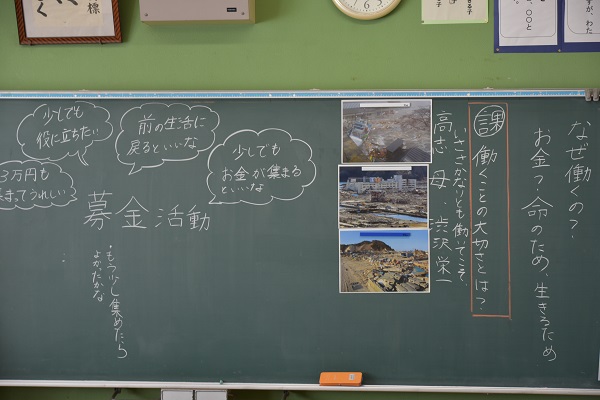 なぜ働くの?
お金?命のため、生きるため
課 働くことの大切さとは?
いささかなりとも働いてこそ、
高志 母・渋沢栄一
少しでも
お金が集まる
といいな
前の生活に
戻るといいな
少しでも
役に立ちたい
3万円も
集まってうれしい
募金活動
・もう少し集めたら
よかったかな
標